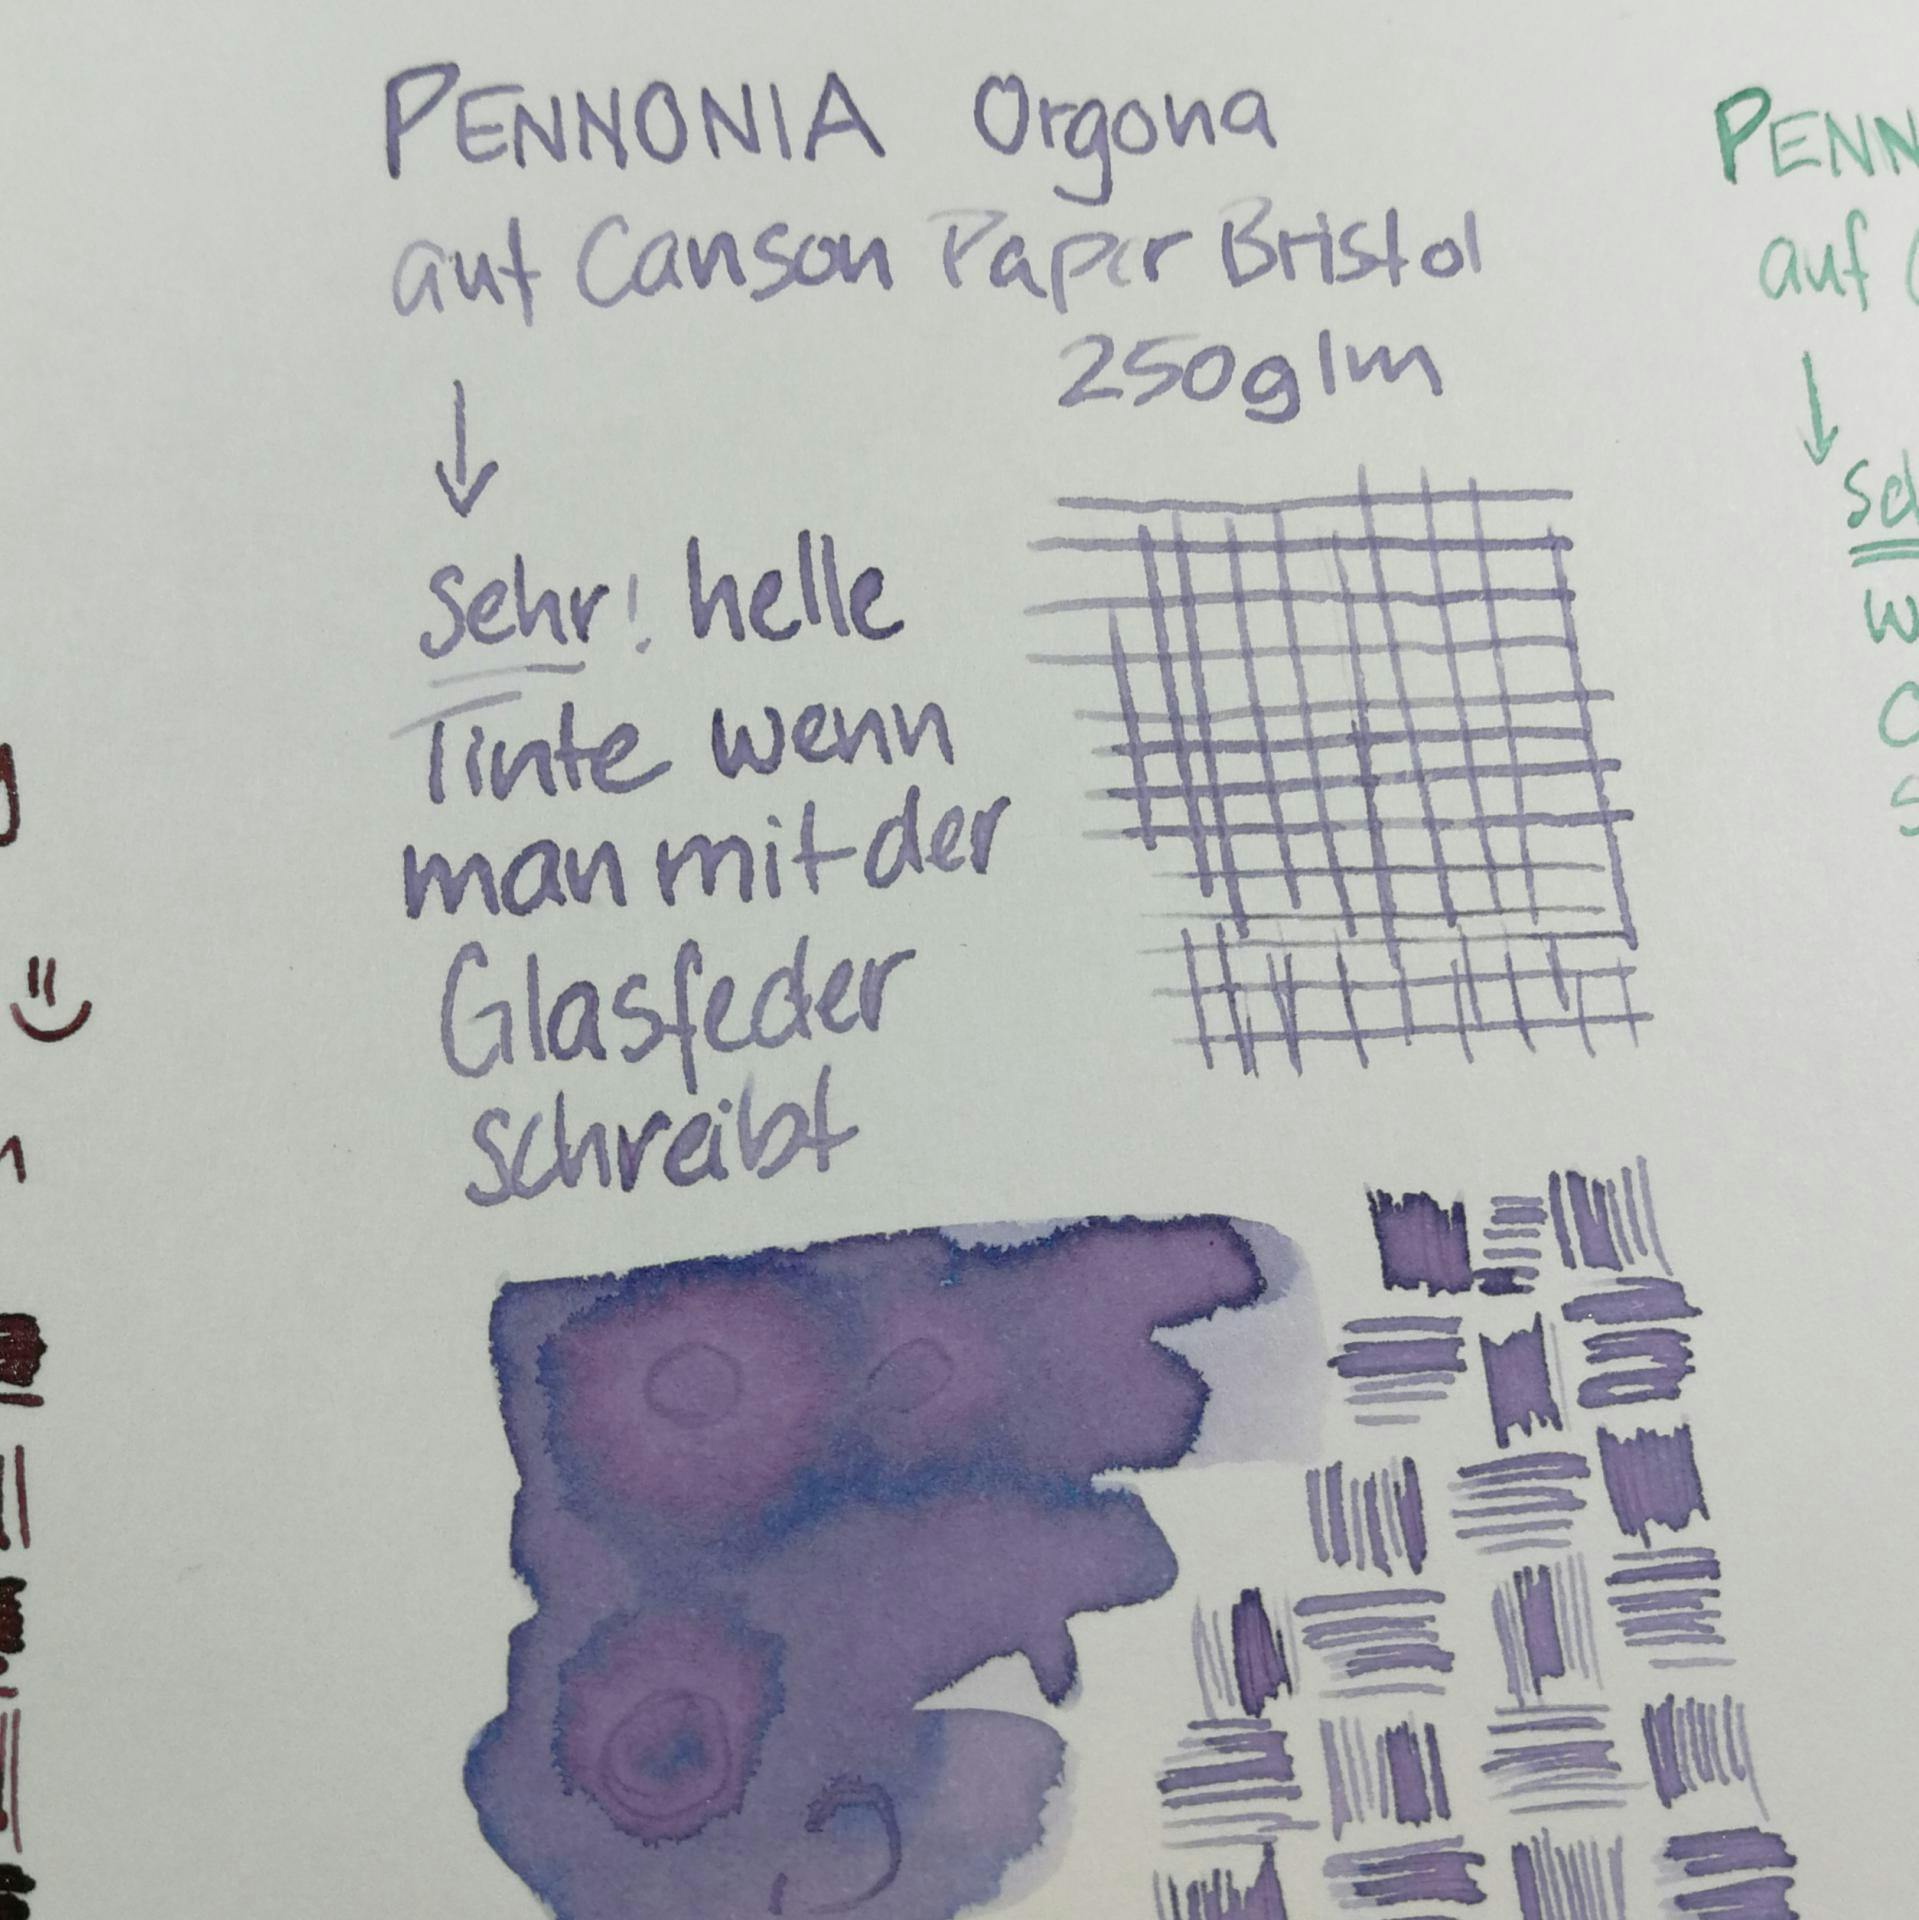 PENNONIA Orgona
auf Canson Paper Bristol
250g/m
↓
sehr! helle
Tinte wenn
man mit der
Glasfeder
schreibt
PENN
auf